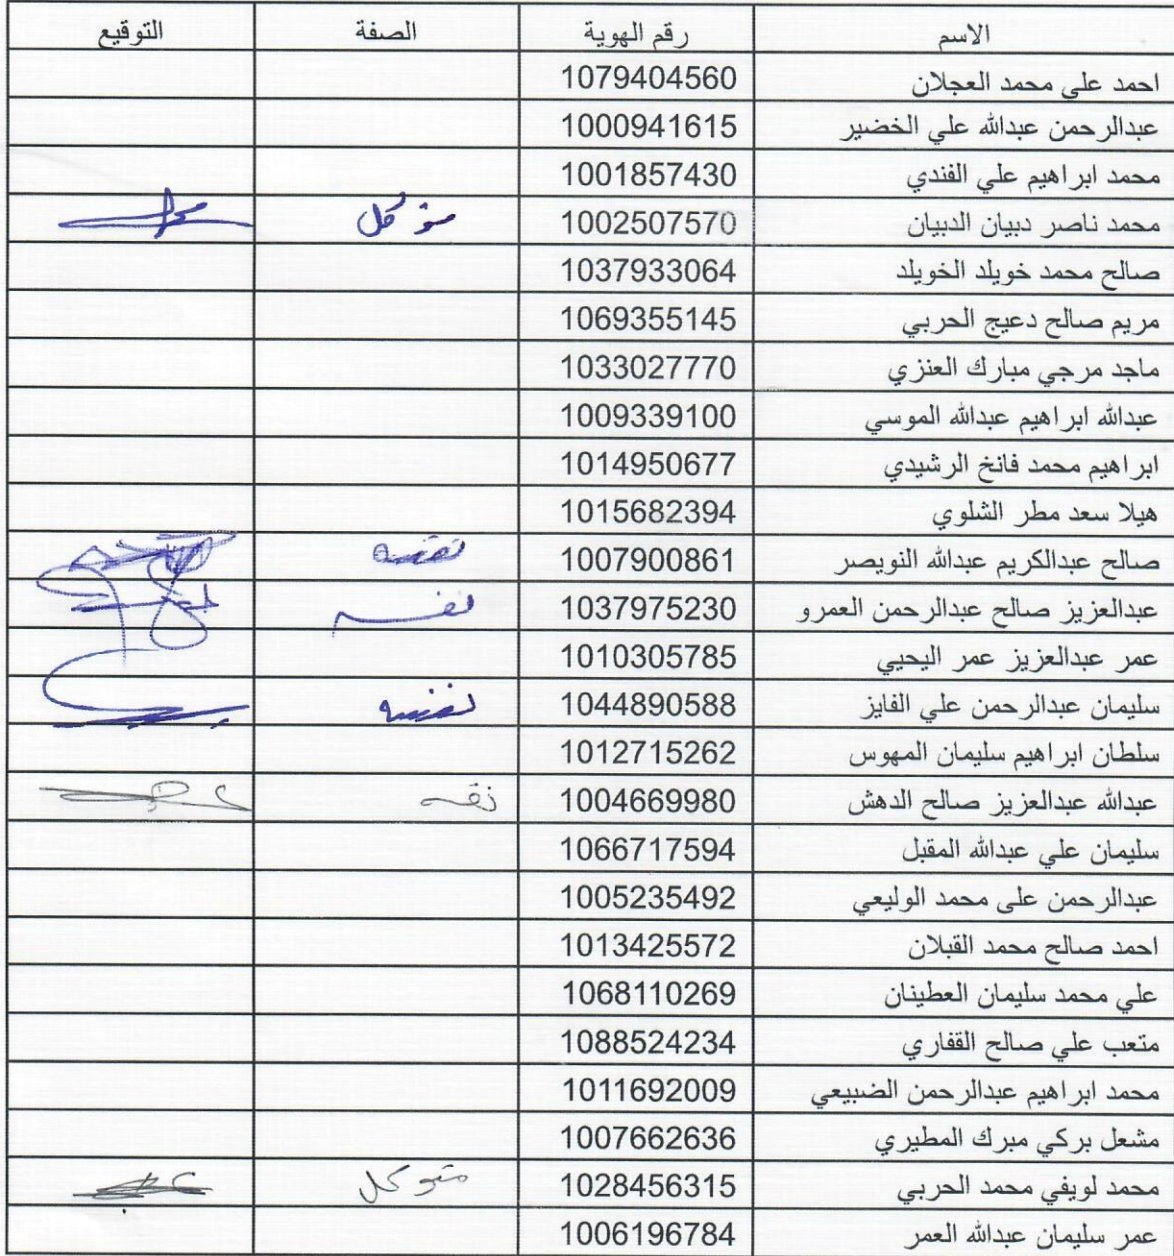 الاسم رقم الهوية الصفة التوقيع
احمد علي محمد العجلان 1079404560
عبدالرحمن عبدالله علي الخضير 1000941615
محمد ابراهيم علي الفندي 1001857430
محمد ناصر دبيان الدبيان 1002507570 متوكل
صالح محمد خويلد الخويلد 1037933064
مريم صالح دعيج الحربي 1069355145
ماجد مرجي مبارك العنزي 1033027770
عبدالله ابراهيم عبدالله الموسي 1009339100
ابراهيم محمد فانخ الرشيدي 1014950677
هيلا سعد مطر الشلوي 1015682394
صالح عبدالكريم عبدالله النويصر 1007900861 نفسه
عبدالعزيز صالح عبدالرحمن العمرو 1037975230 نفسه
عمر عبدالعزيز عمر اليحيي 1010305785
سليمان عبدالرحمن علي الفايز 1044890588 نفسه
سلطان ابراهيم سليمان المهوس 1012715262
عبدالله عبدالعزيز صالح الدهش 1004669980 نفسه
سليمان علي عبدالله المقبل 1066717594
عبدالرحمن على محمد الوليعي 1005235492
احمد صالح محمد القبلان 1013425572
علي محمد سليمان العطينان 1068110269
متعب علي صالح القفاري 1088524234
محمد ابراهيم عبدالرحمن الضبيعي 1011692009
مشعل بركي مبرك المطيري 1007662636
محمد لويفي محمد الحربي 1028456315 متوكل
عمر سليمان عبدالله العمر 1006196784